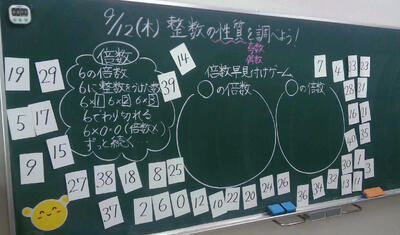 9/12(木) 整数の性質を調べよう!
約数
倍数
倍数
6の倍数
6に整数をかけた数
6×1 6×2 6×3
6でわり切れる
6×0=0(倍数×
ずっと続く
倍数早見付けゲーム
○の倍数
○の倍数
19
29
14
39
5
17
9
15
27
38
18
8
25
37
2
6
0
12
10
22
20
24
26
36
34
32
7
4
13
23
28
31
16
35
21
11
33
30
1
3
13
11